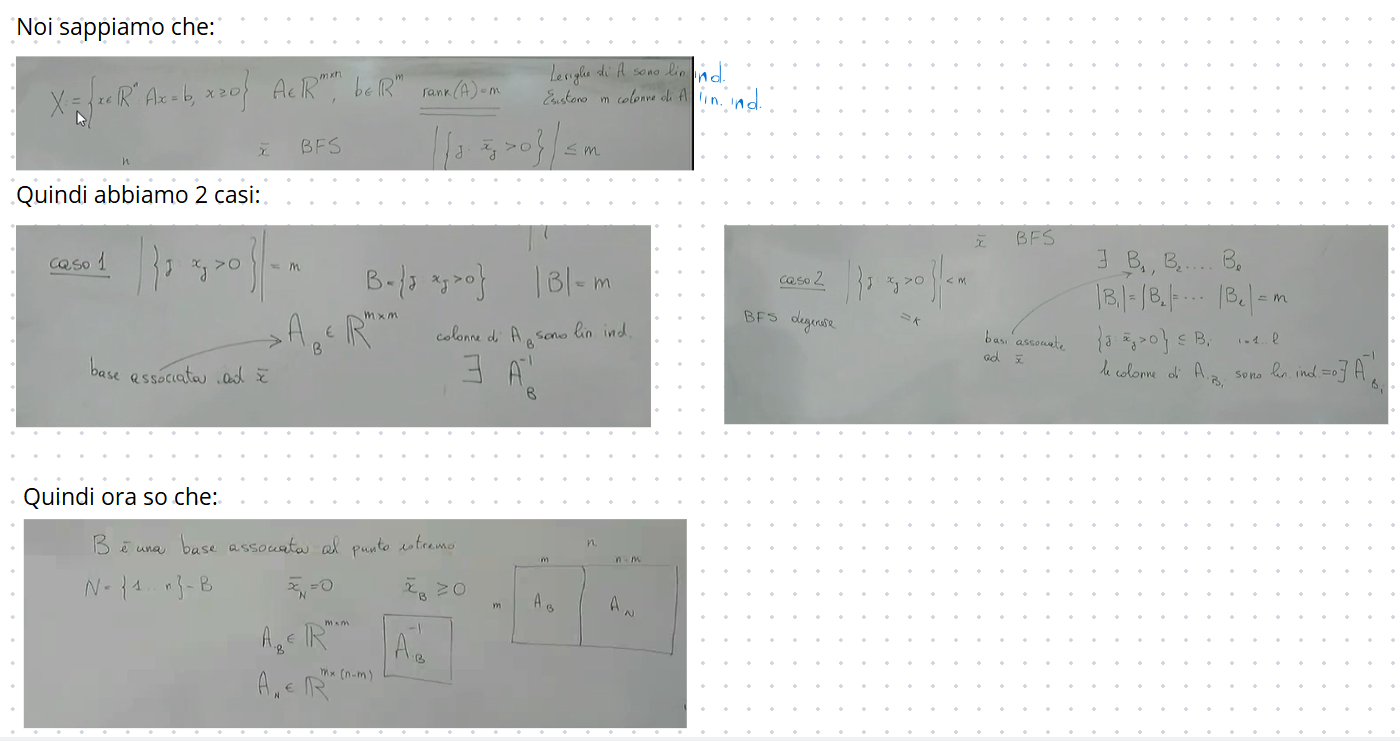 Noi sappiamo che:
X = {x∈ℝⁿ Ax = b, x≥0} A∈ℝ^{m×n}, b∈ℝ^m rank(A)=m
Le righe di A sono lin. ind.
Esistono m colonne di A lin. ind.
x̄ BFS |{j: x̄_j >0}| ≤ m
n
Quindi abbiamo 2 casi:
caso 1 |{j x_j >0}| = m B={j: x_j>0} |B|= m
A_B ∈ ℝ^{m×m} colonne di A_B sono lin. ind.
base associata ad x̄ ∃ A_B^{-1}
x̄ BFS
caso 2 |{j x_j >0}| < m
BFS degenere =k
∃ B₁, B₂ .... B_ℓ
|B₁|=|B₂|= ... |B_ℓ| = m
basi associate ad x̄
{j: x̄_j >0} ⊆ B_i i=1..ℓ
le colonne di A_{B_i} sono lin. ind => ∃ A_{B_i}^{-1}
Quindi ora so che:
B è una base associata al punto estremo
N= {1...n}-B x̄_N=0 x̄_B ≥0
A_B ∈ ℝ^{m×m} A_B^{-1}
A_N ∈ ℝ^{m×(n-m)}
n
m n-m
m A_B A_N